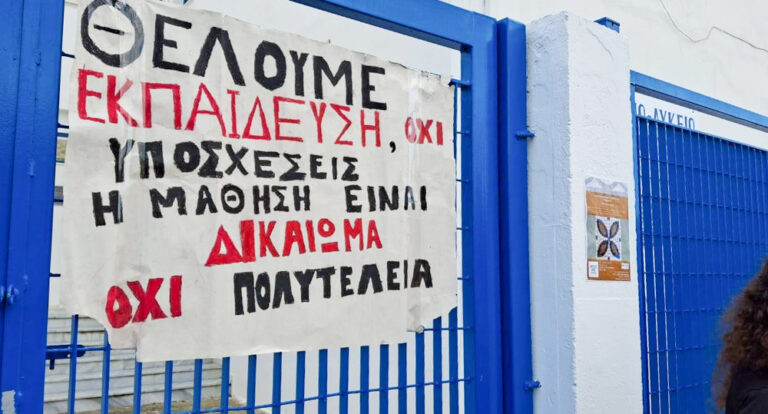 ΘΕΛΟΥΜΕ
ΕΚΠΑΙΔΕΥΣΗ, ΟΧΙ
ΥΠΟΣΧΕΣΕΙΣ
Η ΜΑΘΗΣΗ ΕΙΝΑΙ
ΔΙΚΑΙΩΜΑ
ΟΧΙ ΠΟΛΥΤΕΛΕΙΑ
Ο-ΛΥΚΕΙΟ